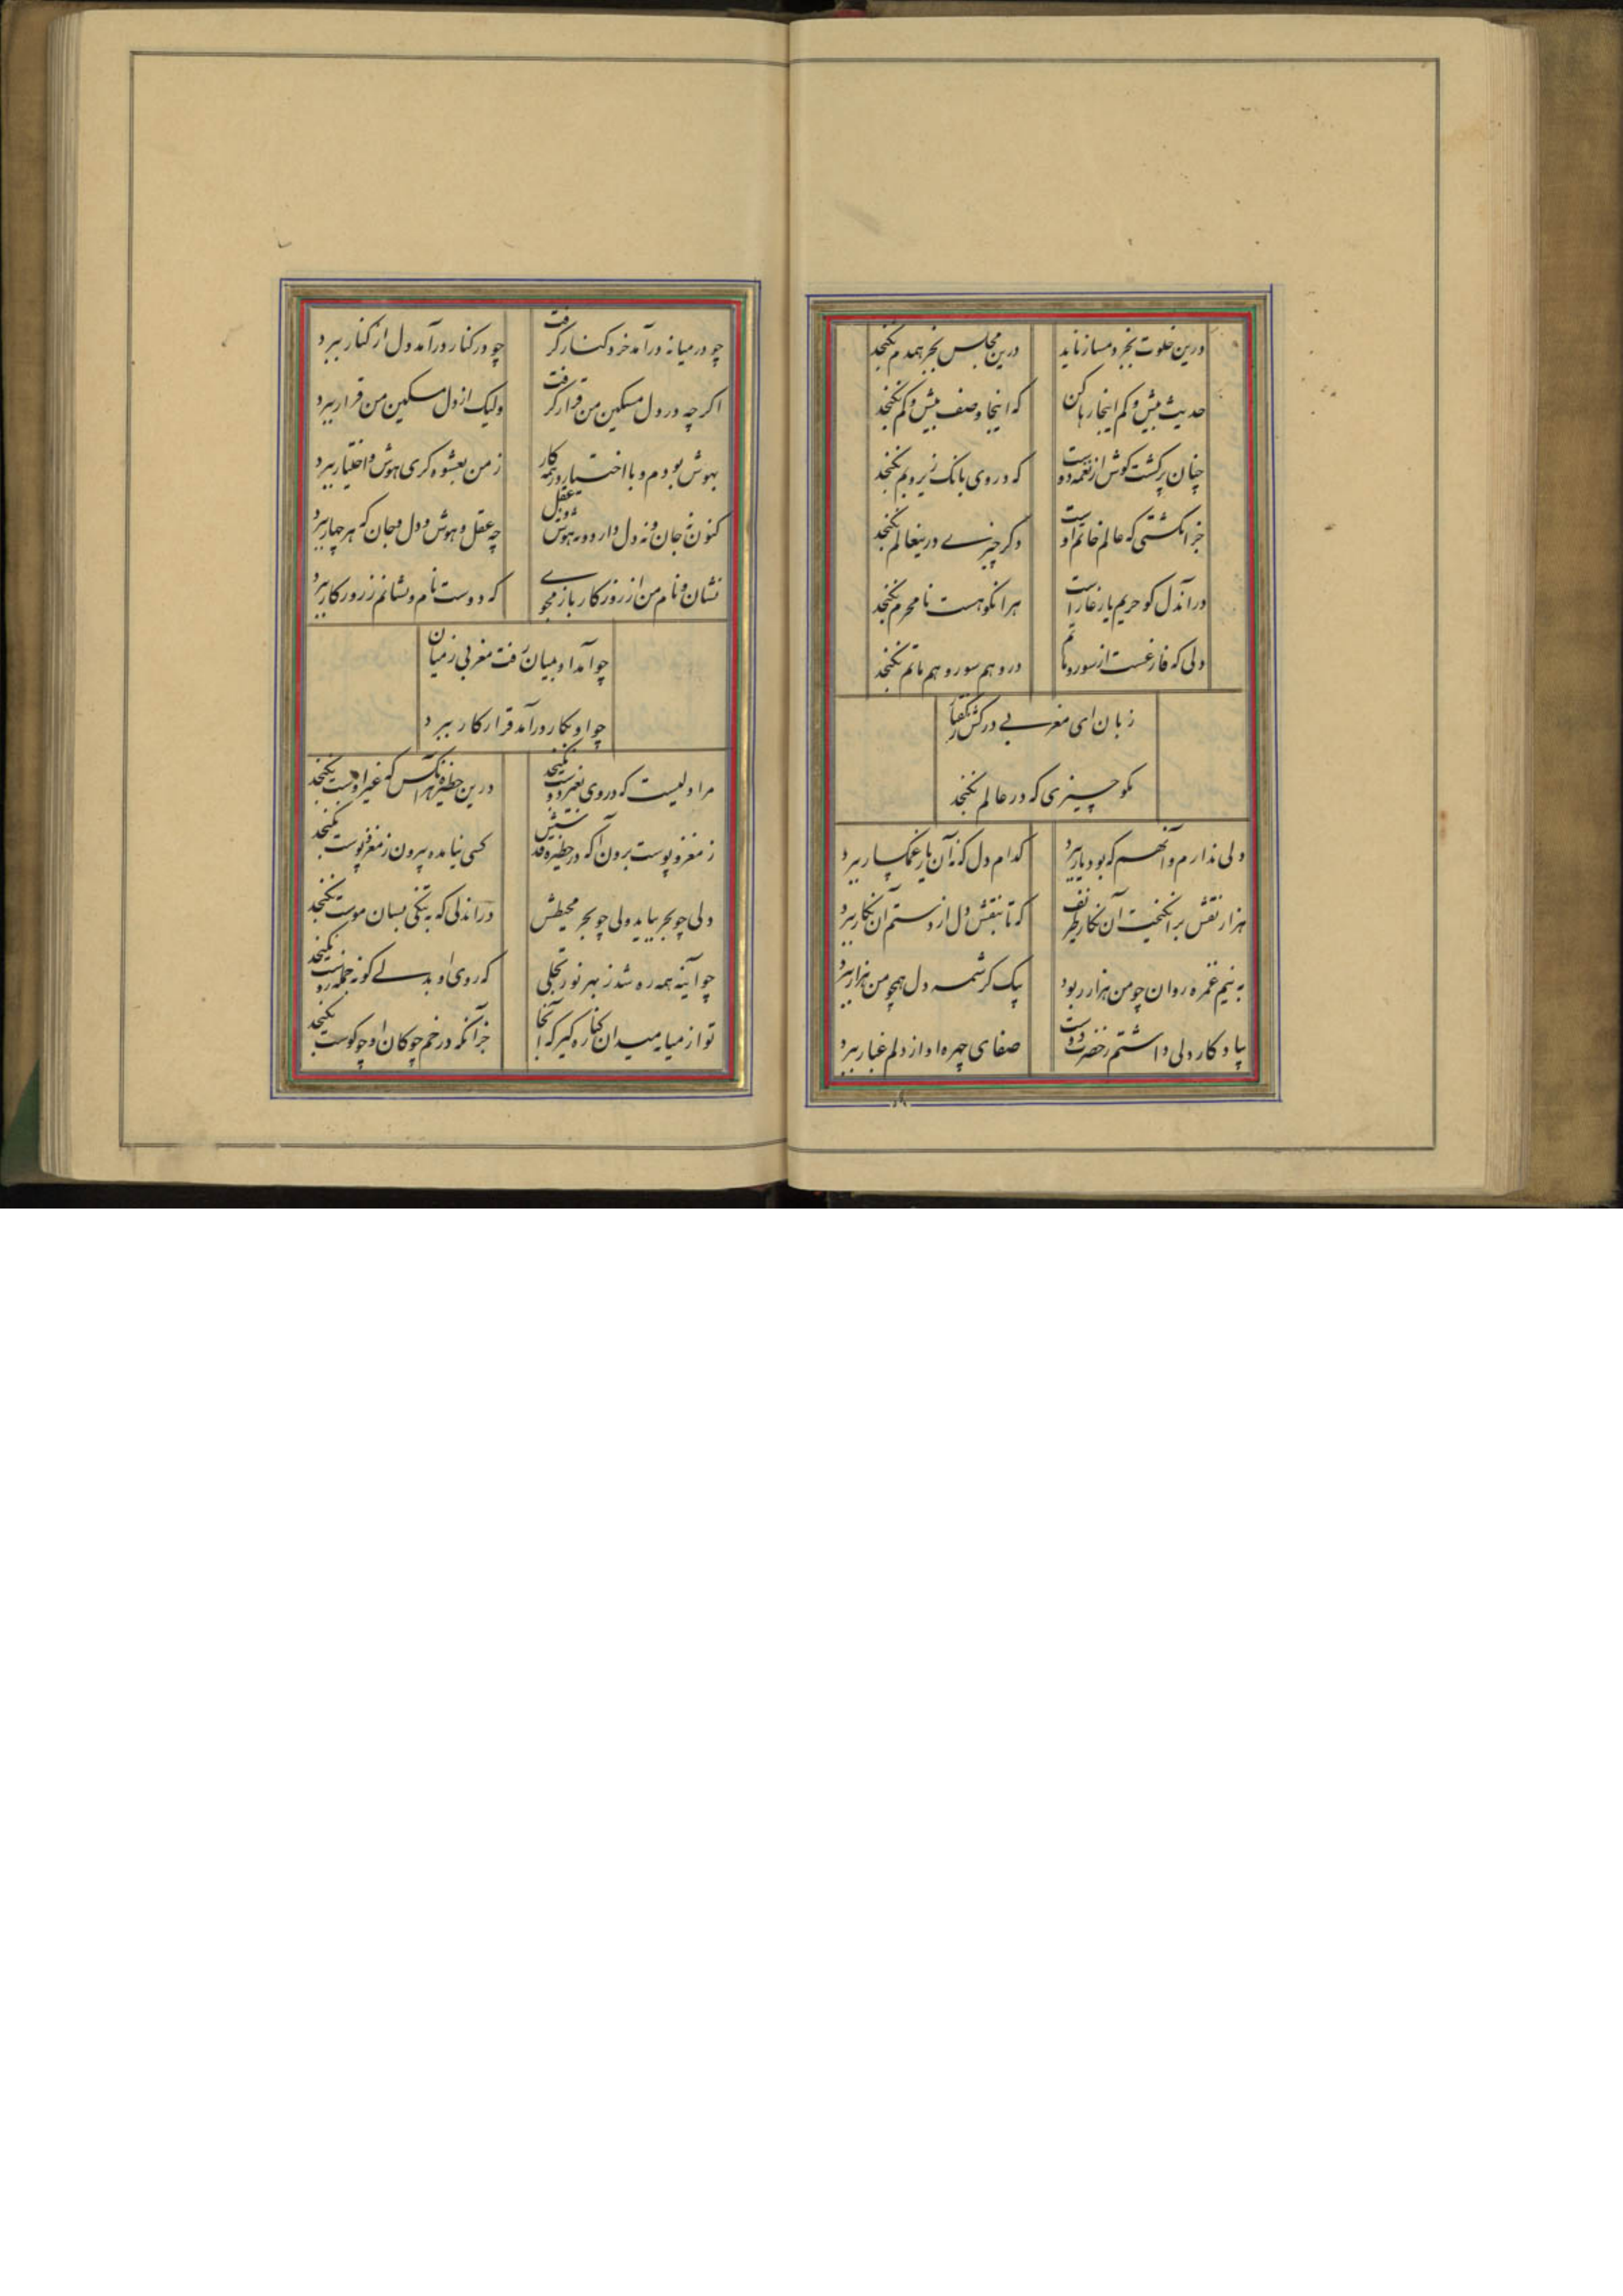 درین خلوت بجز دمساز ناید
درین مجلس بجز همدم نکنجد
حدیث بیش و کم اینجا رها کن
که اینجا وصف بیش و کم نکنجد
چنان پر کشت کوش از نغمه دوست
که در وی بانک زیر و بم نکنجد
جز انکشتی که عالم خاتم اوست
دکر چیزے درینعالم نکنجد
در آندل کو حریم یار غار است
هر انکو هست نامحرم نکنجد
دلی که فارغست از سور و ماتم
درو هم سور و هم ماتم نکنجد
زبان ای مغربے درکش ز کفتار
مکو چیزی که در عالم نکنجد
دلی ندارم و آنهم که بود یار ببرد
کدام دل که نه آن یار غمکسار ببرد
هزار نقش برانکیخت آن نکار ظریف
که تا بنقش دل از دستم آن نکار ببرد
به نیم غمزه روان چو من هزار ربود
بیک کرشمه دل همچو من هزار ببرد
بیادکار دلی داشتم ز حضرت دوست
صفای چهره او از دلم غبار ببرد
چو در میانه درآمد خرد کنار کرفت
چو در کنار درآمد دل از کنار ببرد
اکر چه در دل مسکین من قرار کرفت
ولیک از دل مسکین من قرار ببرد
بهوش بودم و با اختیار در همه کار
ز من بعشوه کری هوش و اختیار ببرد
کنون نه جان و نه دل دارد و نه هوش و نه عقل
چه عقل و هوش و دل و جان که هر چهار ببرد
نشان و نام من از روزکار باز مجوے
که دوست نام و نشانم ز روزکار ببرد
چو آمد او بمیان رفت مغربی ز میان
چو او بکار درآمد قرار کار ببرد
مرا دلیست که در وی بغیر دوست نکنجد
درین حظیره هرانکس که غیر اوست نکنجد
ز مغز و پوست برون آ که در حظیره قدسش
کسی نیامده بیرون ز مغز و پوست نکنجد
دلی چو بحر بیاید ولی چو بحر محیطش
در اندلی که به تنکی بسان موست نکنجد
چو آینه همه رو شد ز بهر نور تجلی
که روی او بدلے کو نه جمله روست نکنجد
تو از میانه میدان کناره کیر که آنجا
جز آنکه در خم چوکان او چو کوست نکنجد